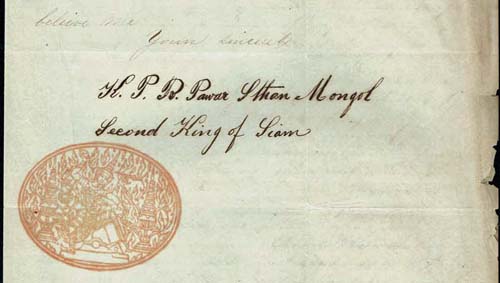 believe me
Yours sincerely
K. P. R. Pawar Sthan Mongol
Second King of Siam